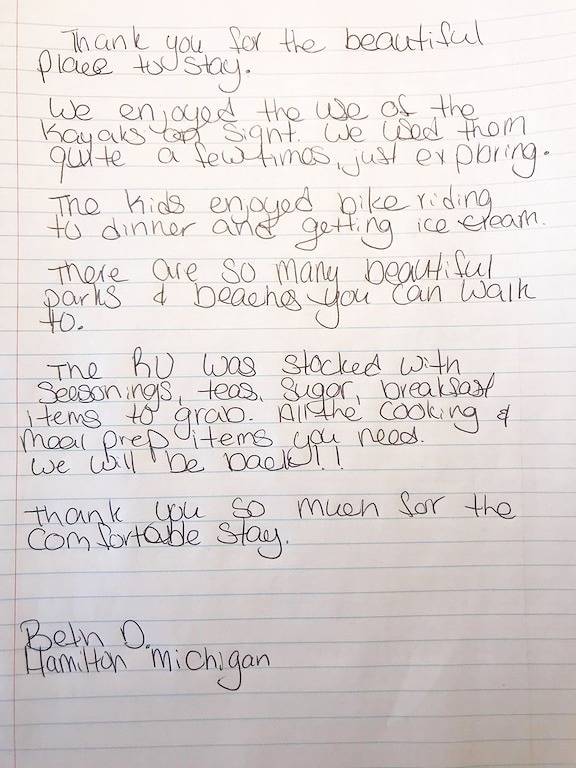 Thank you for the beautiful
place to stay.
We enjoyed the use of the
Kayaks on sight. We used them
quite a few times, just exploring.
The kids enjoyed bike riding
to dinner and getting ice cream.
There are so many beautiful
parks & beaches you can walk
to.
The RV was stocked with
Seesonings, teas, Sugar, breakfast
items to grab. All the cooking &
meal prep items you need.
We will be back!!
Thank you so much for the
comfortable stay.
Beth D.
Hamilton Michigan